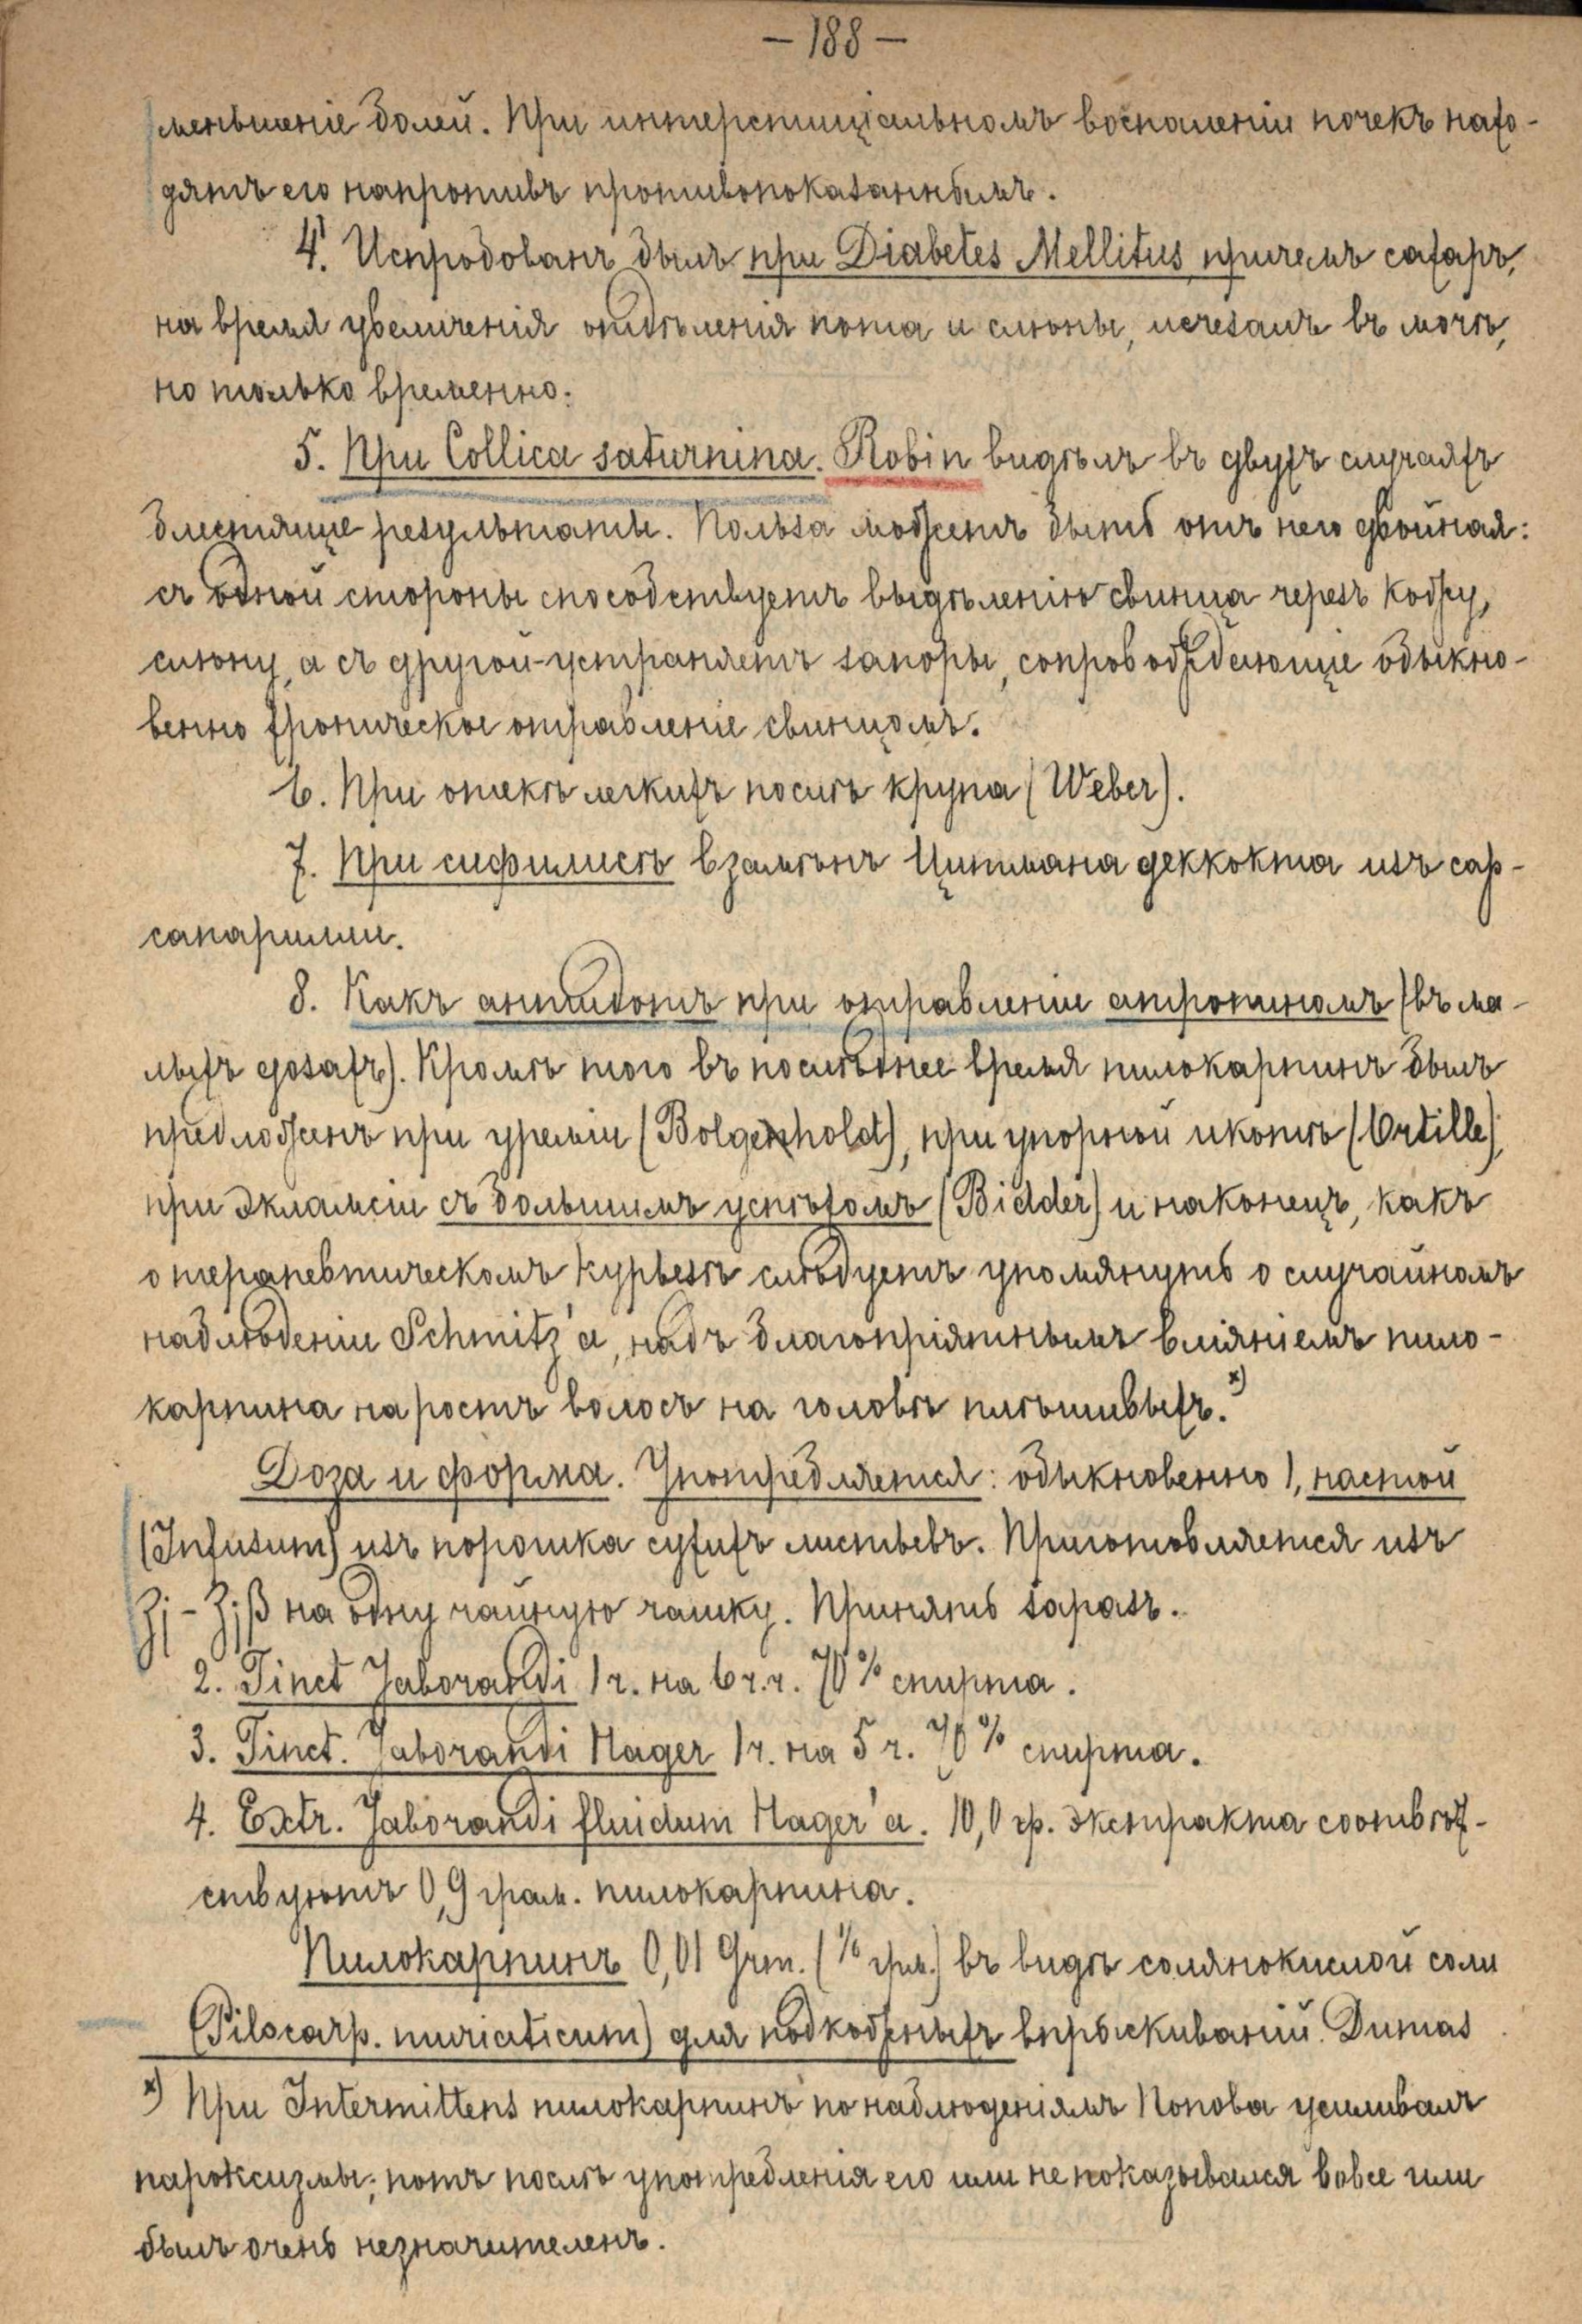 — 188 —
меньшеніе болей. При интерстиціальномъ воспаленіи почекъ нахо-
дятъ его напротивъ противопоказаннымъ.
4. Испробованъ былъ при Diabetes Mellitus, причемъ сахаръ,
на время увеличенія отдѣленія пота и слюны, исчезалъ въ мочѣ,
но только временно.
5. При Collica saturnina. Robin видѣлъ въ двухъ случаяхъ
блестящіе результаты. Польза можетъ быть отъ него двойная:
съ одной стороны способствуетъ выдѣленію свинца черезъ кожу,
слюну, а съ другой - устраняетъ запоры, сопровождающіе обыкно-
венно хроническое отравленіе свинцомъ.
6. При отекѣ легкихъ послѣ крупа (Weber).
7. При сифилисѣ взамѣнъ Цитмана деккокта изъ сар-
сапарилли.
8. Какъ антидотъ при отравленіи атропиномъ (въ ма-
лыхъ дозахъ). Кромѣ того въ послѣднее время пилокарпинъ былъ
предложенъ при уреміи (Bolgenhold), при упорной икотѣ (Ortille),
при эклампсіи съ большимъ успѣхомъ (Bidder) и наконецъ, какъ
о терапевтическомъ курьезѣ слѣдуетъ упомянуть о случайномъ
наблюденіи Schmitz'а, надъ благопріятнымъ вліяніемъ пило-
карпина на ростъ волосъ на головѣ плѣшивыхъ. x)
Доза и форма. Употребляется: обыкновенно 1, настой
(Infusum) изъ порошка сухихъ листьевъ. Приготовляется изъ
ʒj - ʒjβ на одну чайную чашку. Принять заразъ.
2. Tinct Jaborandi 1 ч. на 6 ч.ч. 70% спирта.
3. Tinct. Jaborandi Hager 1 ч. на 5 ч. 70% спирта.
4. Extr. Jaborandi fluidum Hager'а. 10,0 гр. экстракта соотвѣт-
ствуютъ 0,9 грам. пилокарпина.
Пилокарпинъ 0,01 Grm. (1/6 грн.) въ видѣ солянокислой соли
(Pilocarp. muriaticum) для подкожныхъ впрыскиваній. Dumas
x) При Intermittens пилокарпинъ по наблюденіямъ Попова усиливалъ
пароксизмы; потъ послѣ употребленія его или не показывался вовсе или
былъ очень незначителенъ.